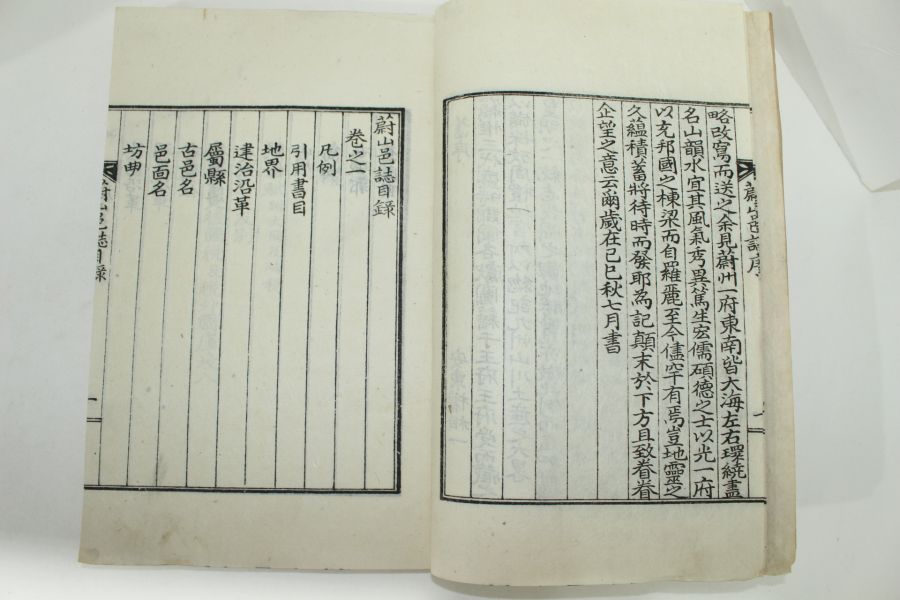 蔚山邑誌序
略改寫而送之余見蔚州一府東南皆大海左右環繞盡
名山韻水宜其風氣秀異篤生宏儒碩德之士以光一府
以充邦國之棟梁而自羅麗至今儘罕有焉豈地靈之
久蘊積蓄將待時而發耶為記顛末於下方且致眷眷
企望之意云爾歲在己巳秋七月書
蔚山邑誌目錄
卷之一
凡例
引用書目
地界
建治沿革
屬縣
古邑名
邑面名
坊曲
蔚山邑誌目錄
一